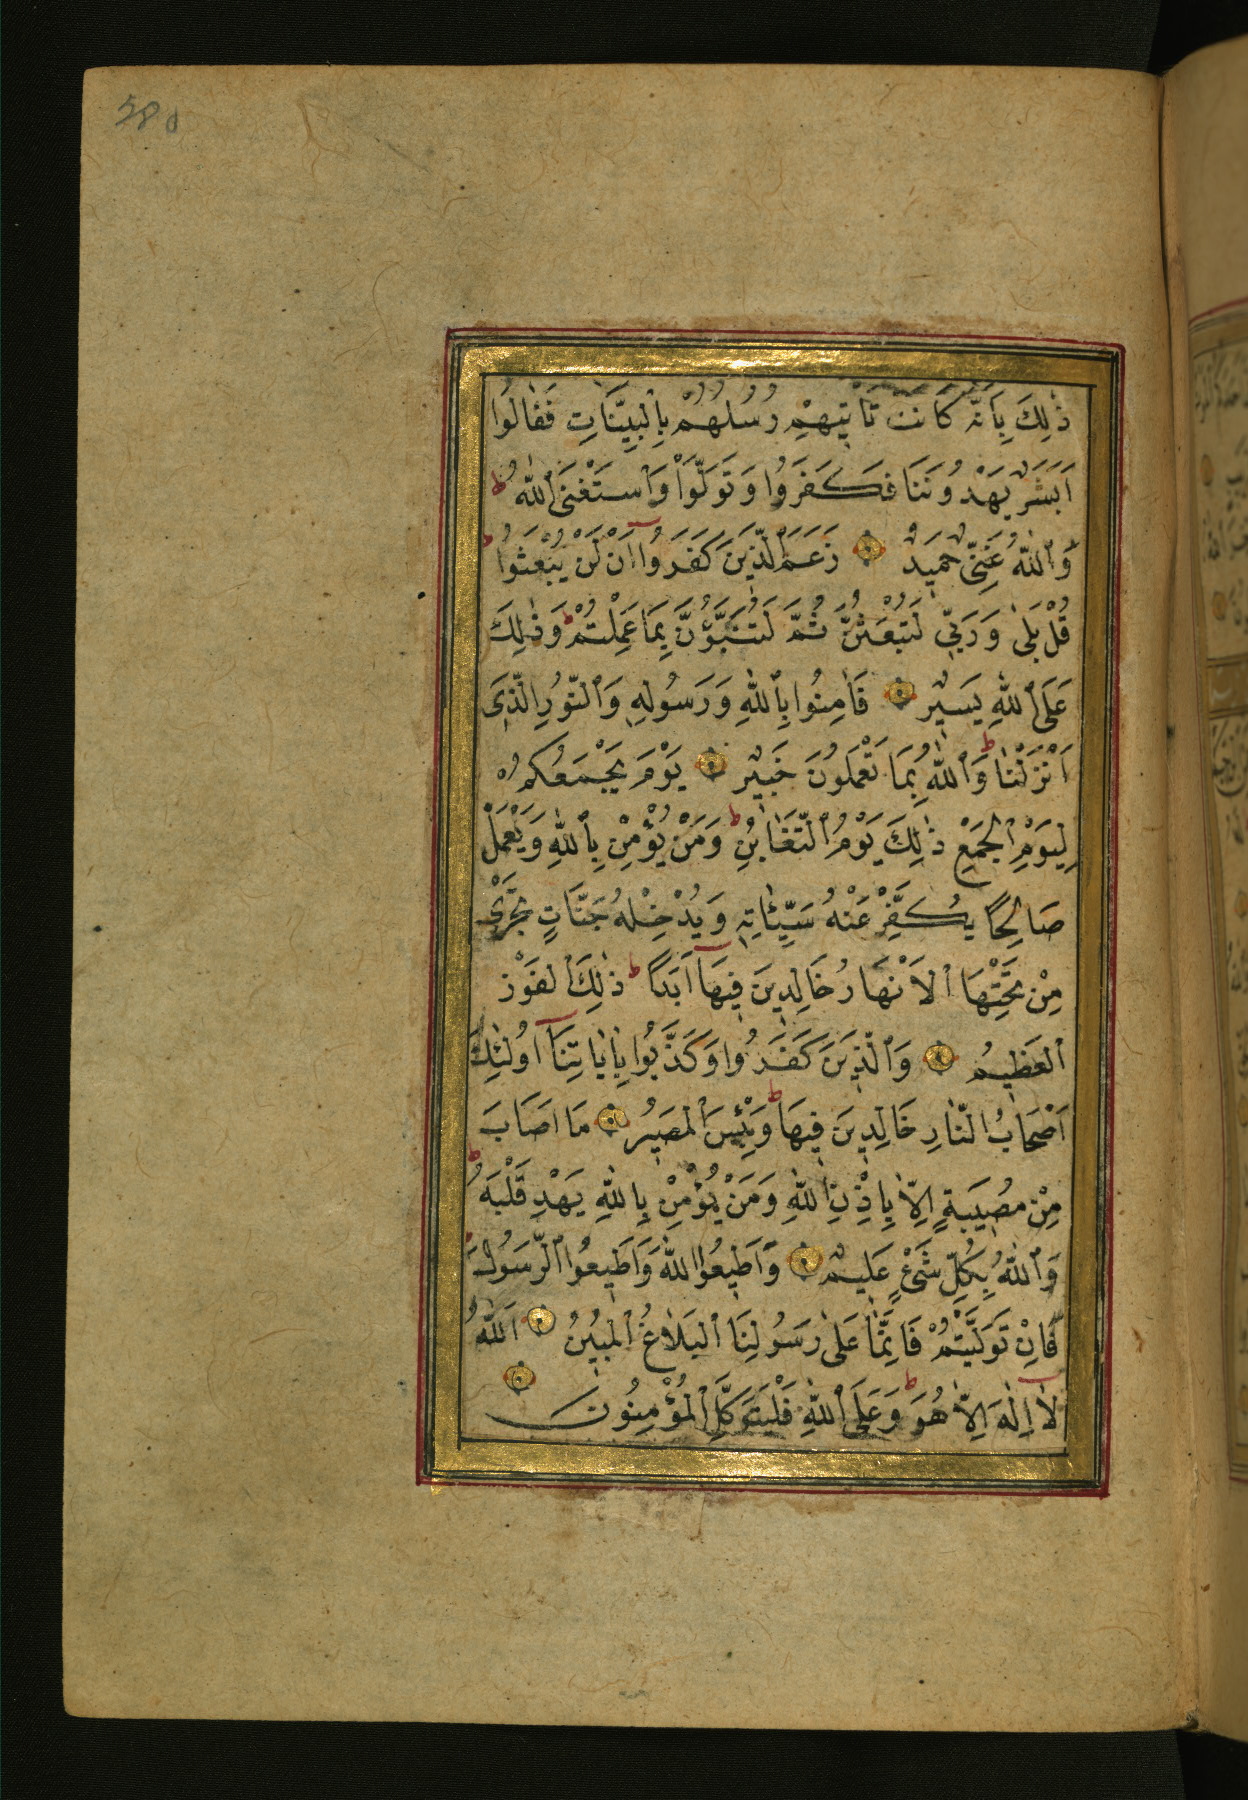 58b
ذٰلِكَ بِاَنَّهُ كَانَتْ تَاْتِيهِمْ رُسُلُهُمْ بِالْبَيِّنَاتِ فَقَالُوا
اَبَشَرٌ يَهْدُونَنَا فَكَفَرُوا وَتَوَلَّوْا وَاسْتَغْنَى اللّٰهُ ط
وَاللّٰهُ غَنِىٌّ حَمِيدٌ زَعَمَ الَّذِينَ كَفَرُوا اَنْ لَنْ يُبْعَثُوا ط
قُلْ بَلٰى وَرَبِّى لَتُبْعَثُنَّ ثُمَّ لَتُنَبَّؤُنَّ بِمَا عَمِلْتُمْ ط وَذٰلِكَ
عَلَى اللّٰهِ يَسِيرٌ فَاٰمِنُوا بِاللّٰهِ وَرَسُولِهِ وَالنُّورِ الَّذِى
اَنْزَلْنَا ط وَاللّٰهُ بِمَا تَعْمَلُونَ خَبِيرٌ يَوْمَ يَجْمَعُكُمْ
لِيَوْمِ الْجَمْعِ ذٰلِكَ يَوْمُ التَّغَابُنِ ط وَمَنْ يُؤْمِنْ بِاللّٰهِ وَيَعْمَلْ
صَالِحًا يُكَفِّرْ عَنْهُ سَيِّئَاتِهِ وَيُدْخِلْهُ جَنَّاتٍ تَجْرِى
مِنْ تَحْتِهَا الْاَنْهَارُ خَالِدِينَ فِيهَا اَبَدًا ط ذٰلِكَ الْفَوْزُ
الْعَظِيمُ وَالَّذِينَ كَفَرُوا وَكَذَّبُوا بِاٰيَاتِنَا اُولٰئِكَ
اَصْحَابُ النَّارِ خَالِدِينَ فِيهَا ط وَبِئْسَ الْمَصِيرُ مَا اَصَابَ
مِنْ مُصِيبَةٍ اِلَّا بِاِذْنِ اللّٰهِ وَمَنْ يُؤْمِنْ بِاللّٰهِ يَهْدِ قَلْبَهُ ط
وَاللّٰهُ بِكُلِّ شَىْءٍ عَلِيمٌ وَاَطِيعُوا اللّٰهَ وَاَطِيعُوا الرَّسُولَ
فَاِنْ تَوَلَّيْتُمْ فَاِنَّمَا عَلٰى رَسُولِنَا الْبَلَاغُ الْمُبِينُ اَللّٰهُ
لَا اِلٰهَ اِلَّا هُوَ ط وَعَلَى اللّٰهِ فَلْيَتَوَكَّلِ الْمُؤْمِنُونَ